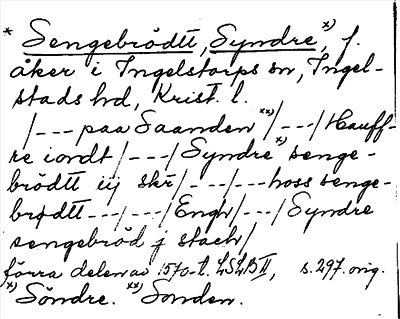 * Sengebrödtt, Syndre, x) f.
åker i Ingelstorps sn, Ingel-
stads hd, Krist. l.
/---paa Saanden xx)/---/Hauff-
re iordt/---/Syndre x) senge-
brödtt iij skr/---/---hoss senge-
brødtt---/---/Engh/---/Syndre
sengebröd j stach/
förra delen av 1570-t. LSLB II, s. 297. orig.
x) Söndre. xx) Sonden.